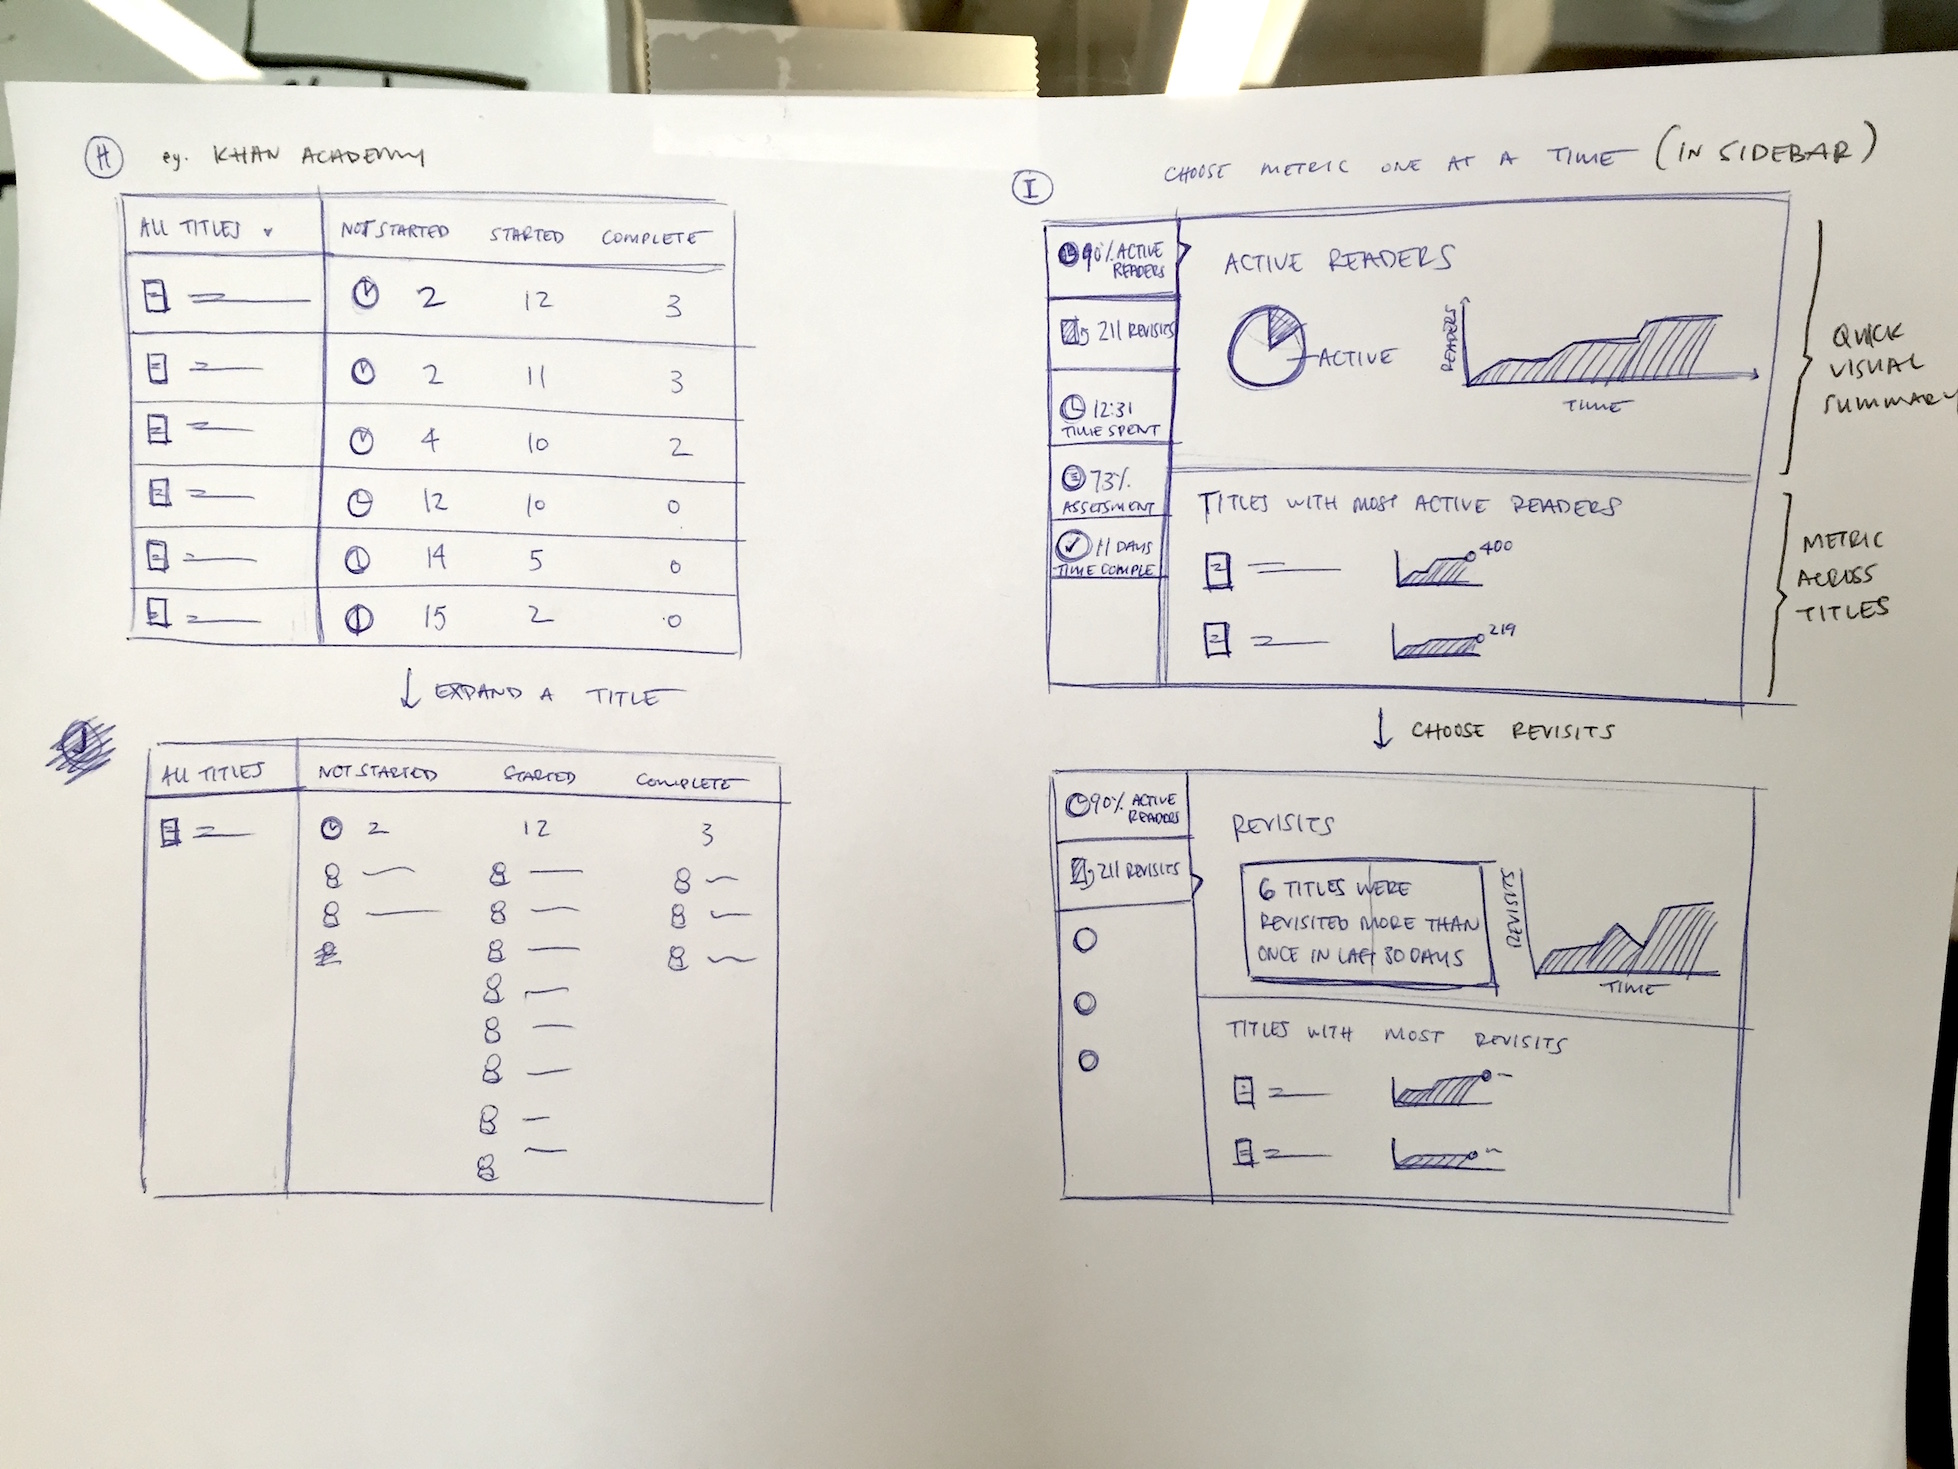 H eg. KHAN ACADEMY
ALL TITLES NOT STARTED STARTED COMPLETE
2 12 3
2 11 3
4 10 2
12 10 0
14 5 0
15 2 0
↓ EXPAND A TITLE
J
ALL TITLES NOT STARTED STARTED COMPLETE
2 12 3
I CHOOSE METRIC ONE AT A TIME (IN SIDEBAR)
90% ACTIVE
READERS
211 REVISITS
12:31
TIME SPENT
73%
ASSESSMENT
11 DAYS
TIME COMPLE
ACTIVE READERS
ACTIVE
READERS
TIME
TITLES WITH MOST ACTIVE READERS
400
219
QUICK
VISUAL
SUMMARY
METRIC
ACROSS
TITLES
↓ CHOOSE REVISITS
90% ACTIVE
READERS
211 REVISITS
REVISITS
6 TITLES WERE
REVISITED MORE THAN
ONCE IN LAST 30 DAYS
REVISITS
TIME
TITLES WITH MOST REVISITS